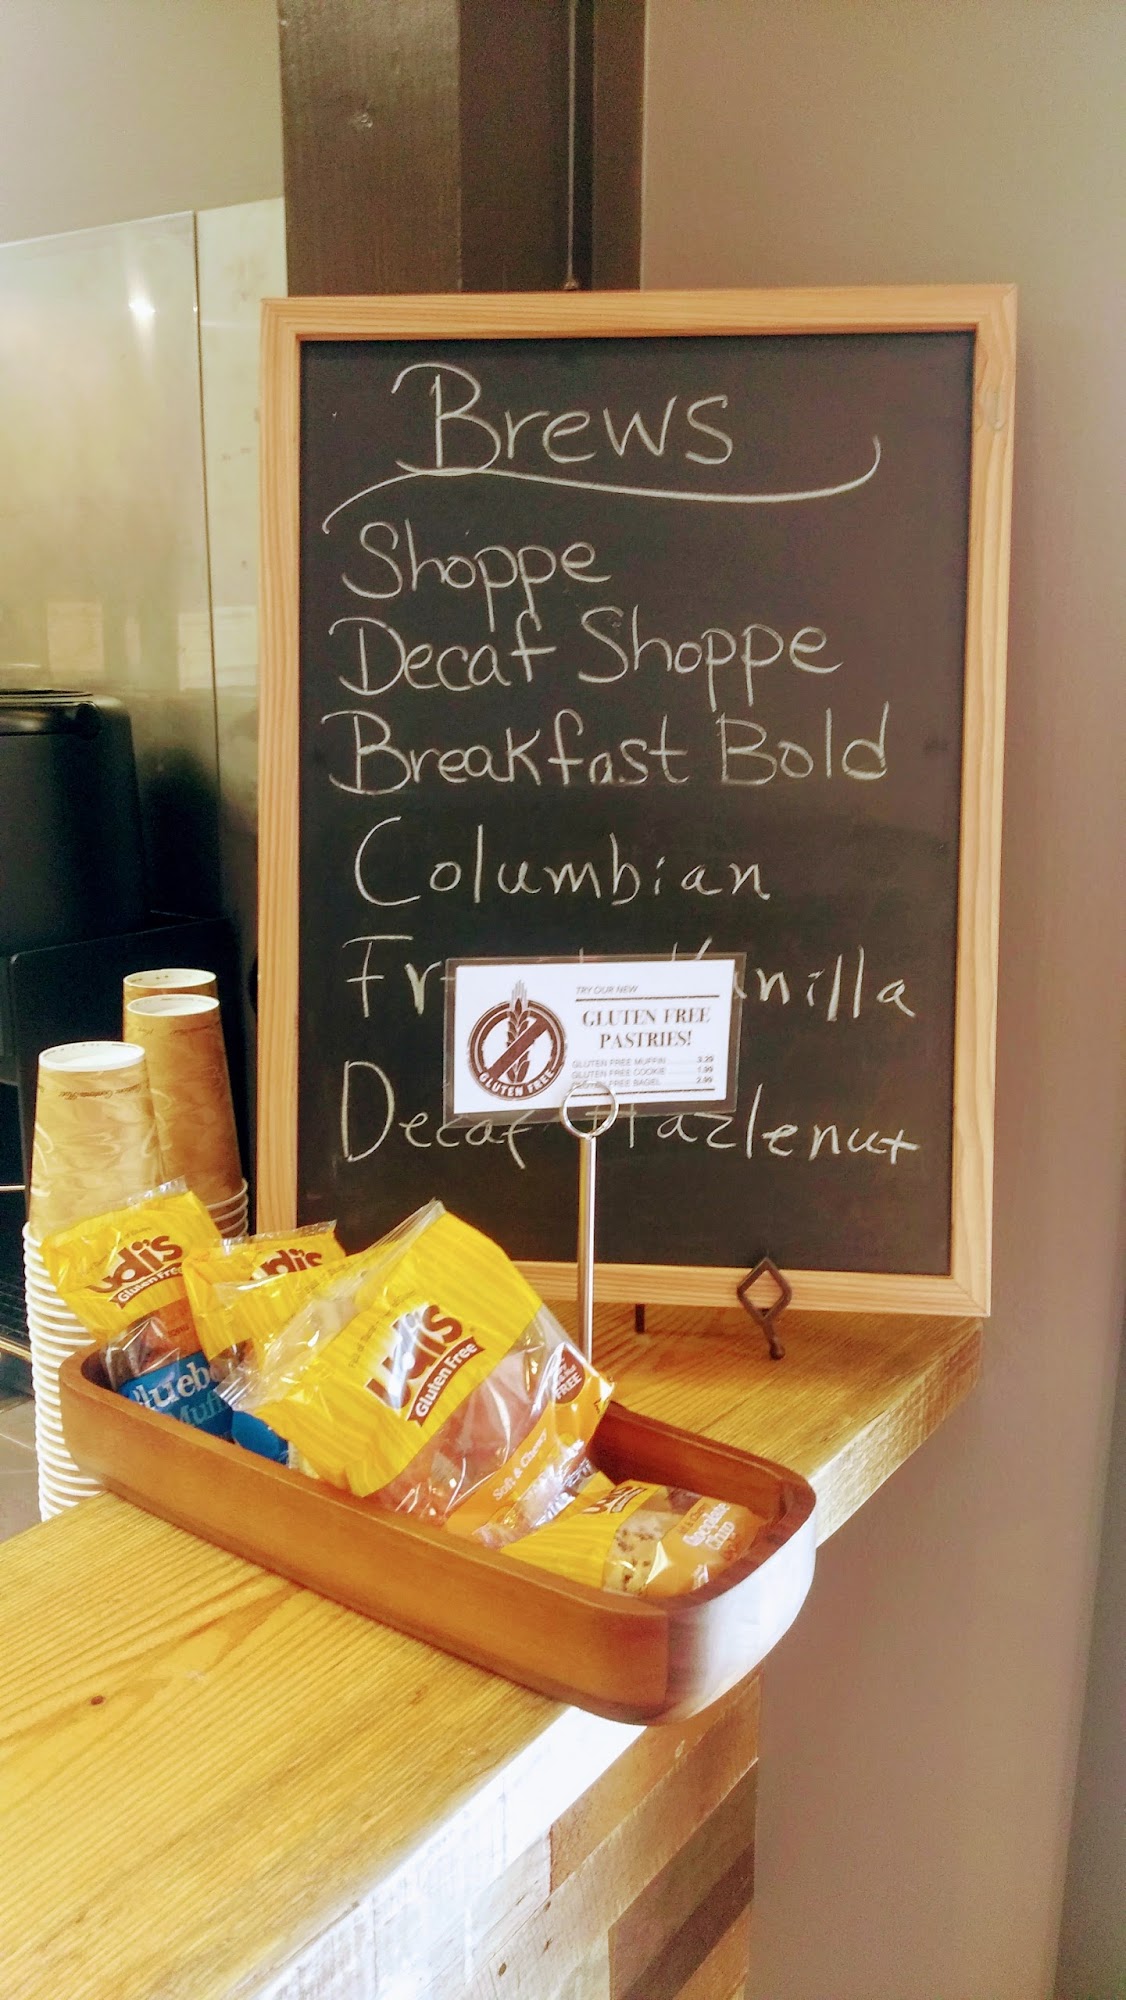 Brews
Shoppe
Decaf Shoppe
Breakfast Bold
Columbian
Vanilla
Decaf Hazlenut
TRY OUR NEW
GLUTEN FREE
PASTRIES!
GLUTEN FREE MUFFIN 3.29
GLUTEN FREE COOKIE 1.99
GLUTEN FREE BAGEL 2.99
GLUTEN FREE
udi's
Gluten Free
udi's
udi's
Gluten Free
FREE
Soft & Chewy
Chocolate
Chip